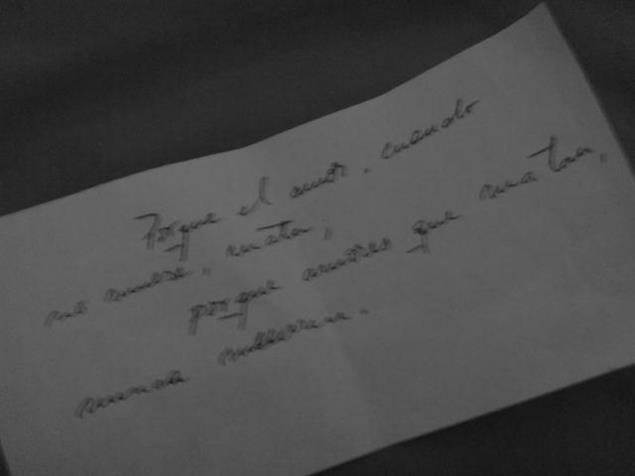 Porque el amor, cuando
no muere, mata;
porque amores que matan,
nunca mueren.